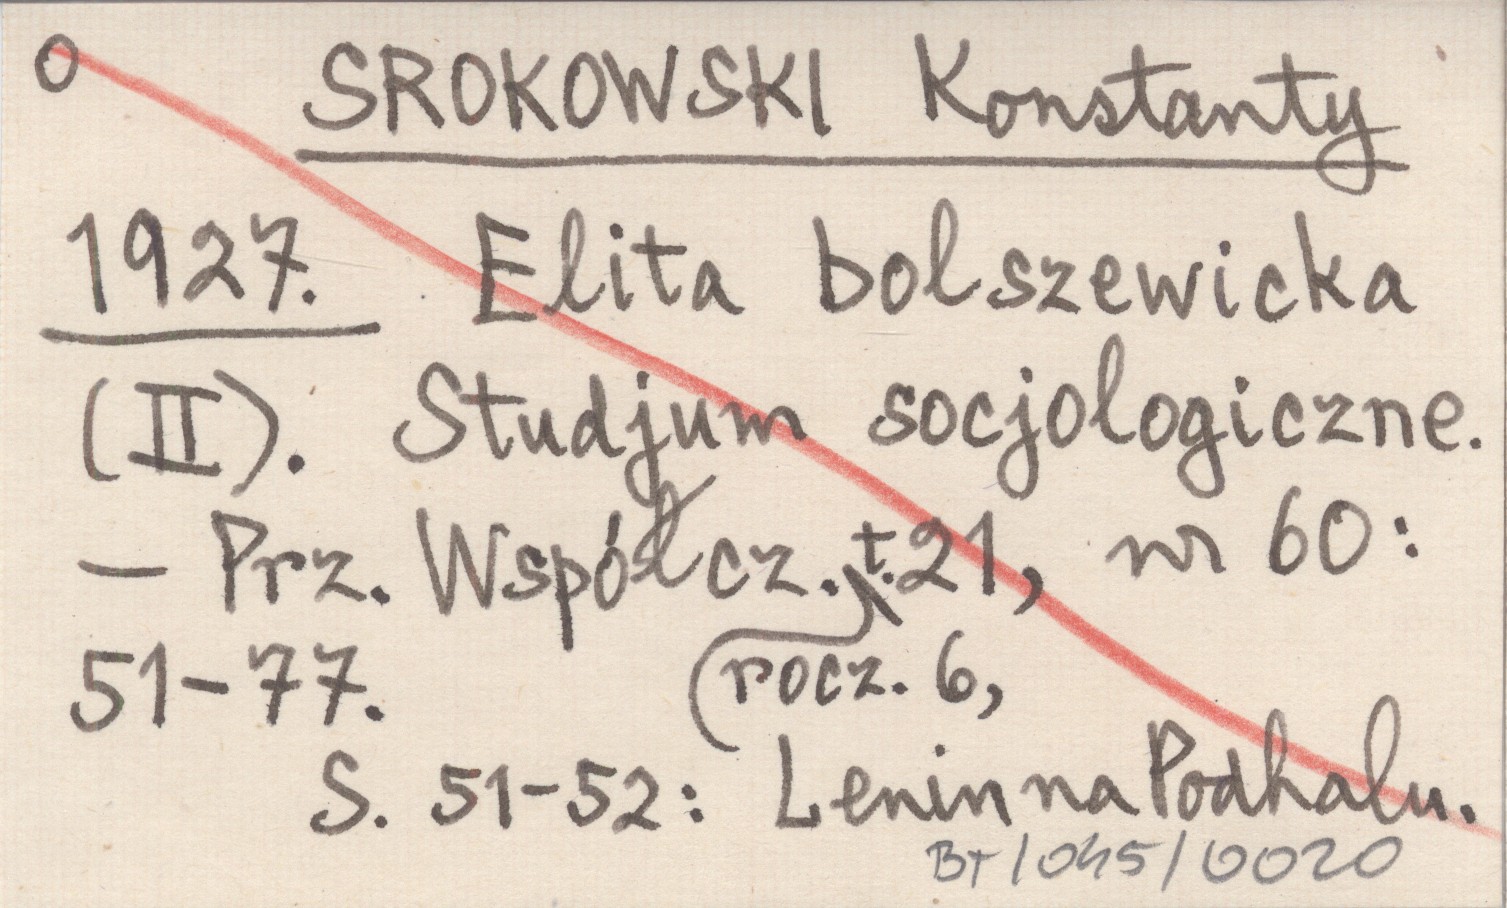 O SROKOWSKI Konstanty
1927. Elita bolszewicka
(II). Studjum socjologiczne.
— Prz. Współcz. t. 21, nr 60:
51-77. rocz. 6,
S. 51-52: Lenin na Podhalu.
BT/045/0020